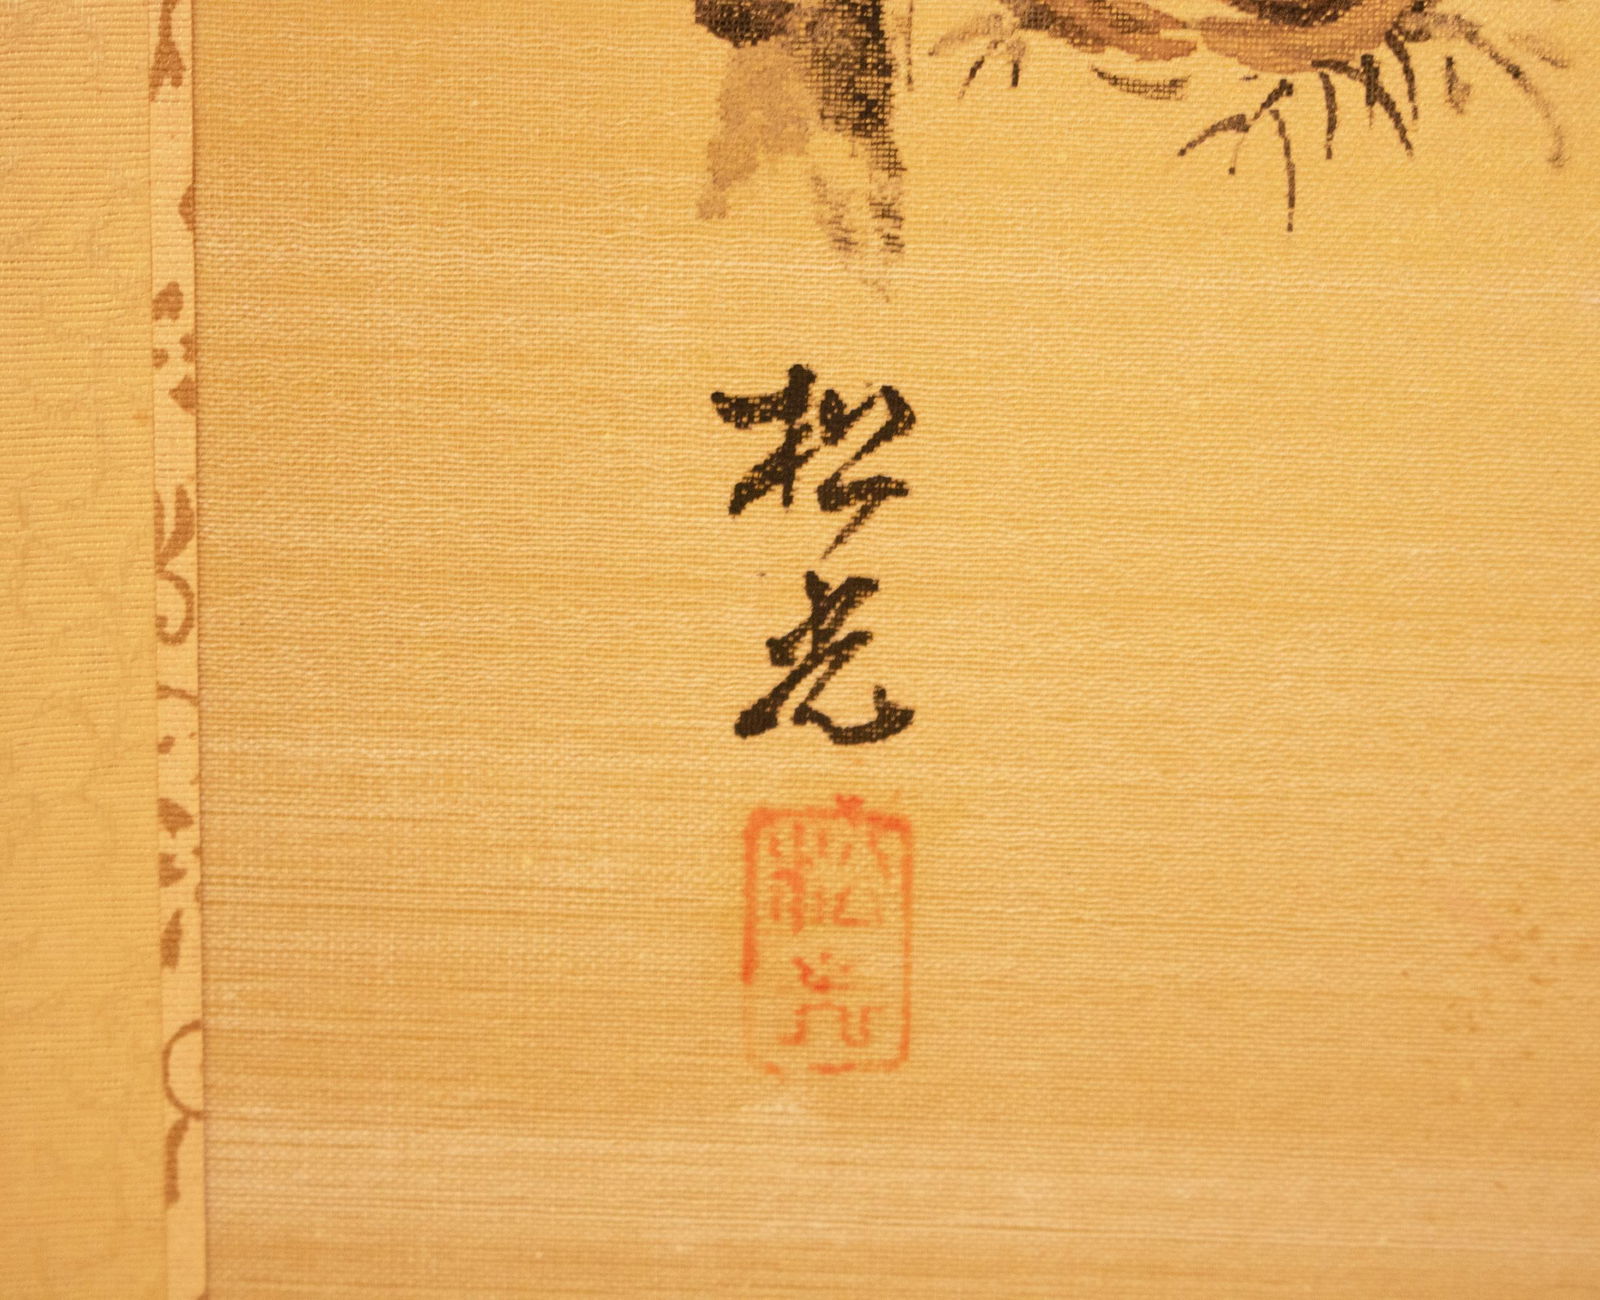 松光
松光